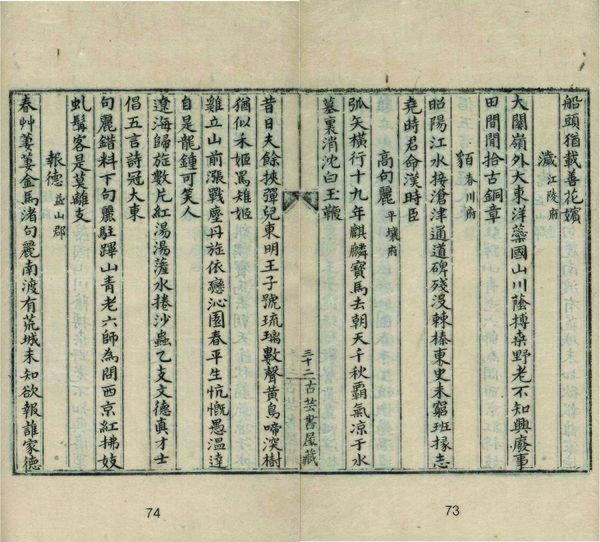 船頭猶載善花嬪
濊 江陵府
大關嶺外大東洋蘂國山川蔭搏桑野老不知興廢事
田間閒拾古銅章
貊 春川府
昭陽江水接滄津通道碑殘沒棘榛東史未窮班掾志
堯時君命漢時臣
高句麗 平壤府
弧矢橫行十九年麒麟寶馬去朝天千秋霸氣凉于水
墓裏消沈白玉鞭
三十二 古芸書屋藏
昔日夫餘挾彈兒東明王子號琉璃數聲黃鳥啼深樹
猶似禾姬罵雉姬
雞立山前漲戰塵丹旌依戀沁園春平生忼慨愚溫達
自是龍鍾可笑人
遼海歸旌數片紅湯湯薩水捲沙蟲乙支文德眞才士
倡五言詩冠大東
句麗錯料下句麗駐蹕山青老六師為問西京紅拂妓
虬髯客是莫離支
報德 益山郡
春艸萋萋金馬渚句麗南渡有荒城未知欲報誰家德
73
74